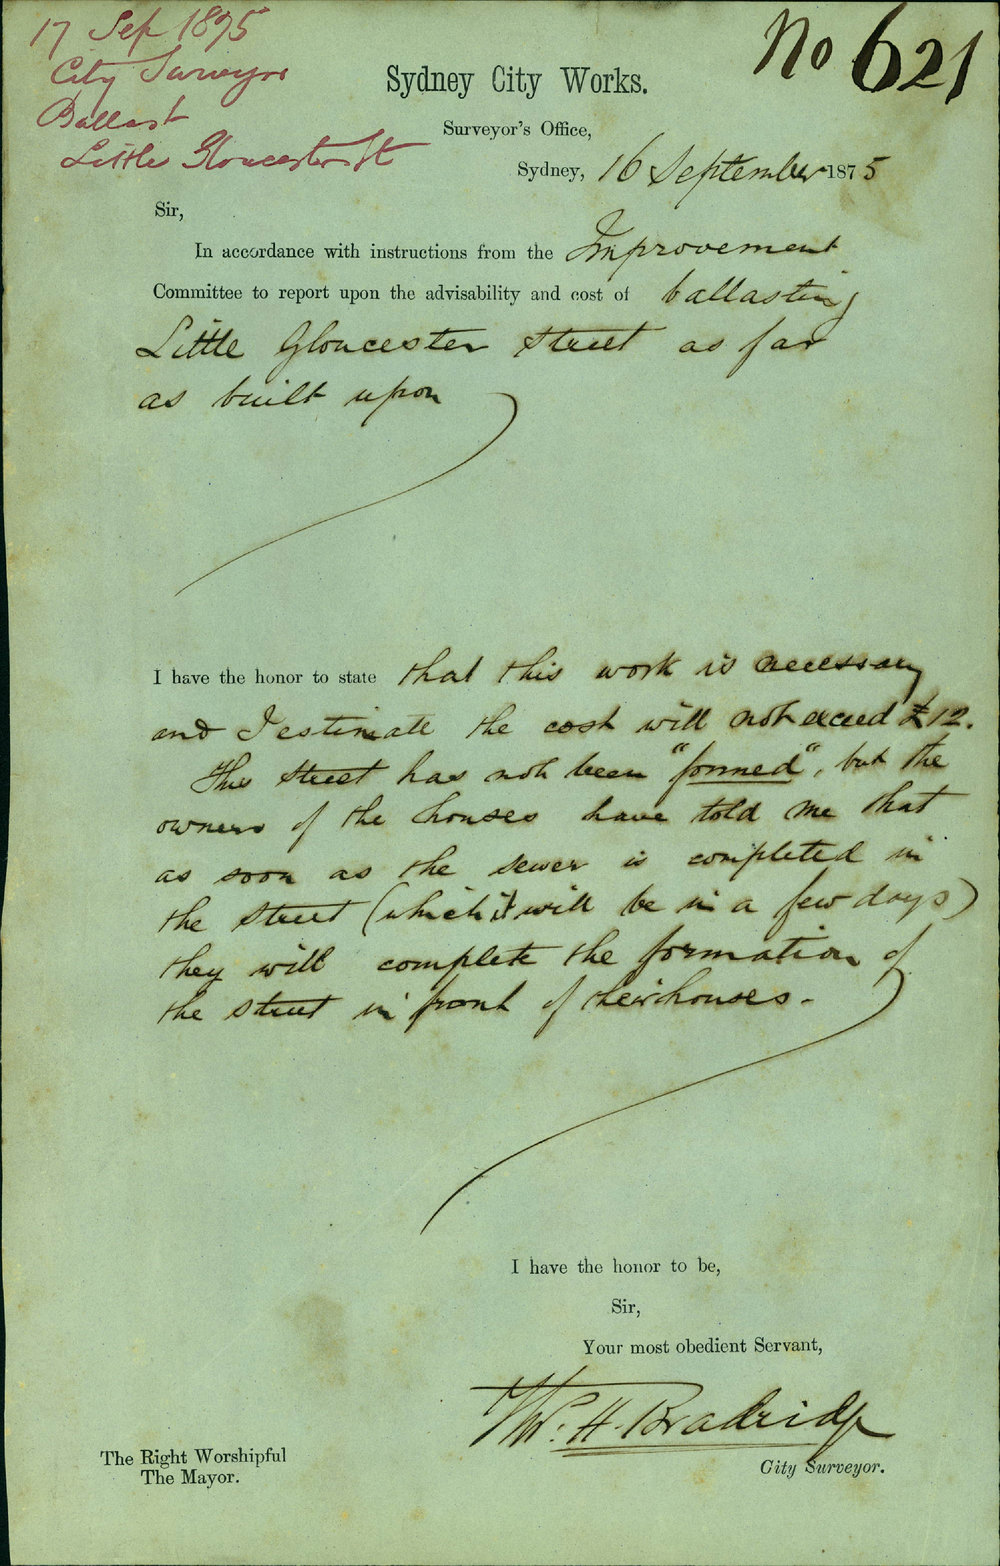 17 Sep 1875
City Surveyor
Ballast
Little Gloucester St
No 621
Sydney City Works.
Surveyor's Office,
Sydney, 16 September 1875
Sir,
In accordance with instructions from the Improvement
Committee to report upon the advisability and cost of ballasting
Little Gloucester Street as far
as built upon
I have the honor to state that this work is necessary
and I estimate the cost will not exceed £12.
This street has not been "formed", but the
owners of the houses have told me that
as soon as the sewer is completed in
the street (which it will be in a few days)
they will complete the formation of
the street in front of their houses.-
I have the honor to be,
Sir,
Your most obedient Servant,
Thos. H. Bradridge
City Surveyor.
The Right Worshipful
The Mayor.